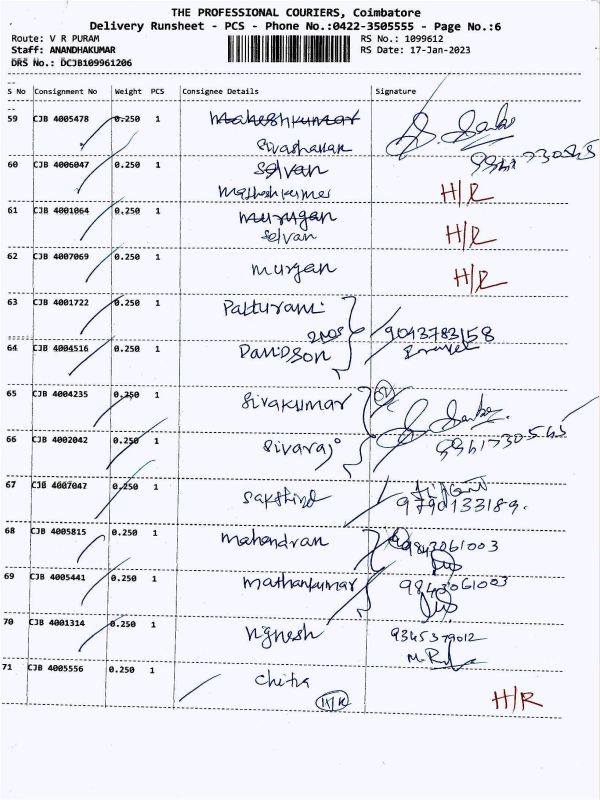 THE PROFESSIONAL COURIERS, Coimbatore
Delivery Runsheet - PCS - Phone No.:0422-3505555 - Page No.:6
Route: V R PURAM
RS No.: 1099612
Staff: ANANDHAKUMAR
RS Date: 17-Jan-2023
DRS No.: DCJB109961206
S No Consignment No Weight PCS Consignee Details Signature
59 CJB 4005478 0.250 1 Maheshkumar
60 CJB 4006047 0.250 1 Selvan
H/R
61 CJB 4001064 0.250 1 Murugan
Selvan H/R
62 CJB 4007069 0.250 1 Murgan H/R
63 CJB 4001722 0.250 1
9043783158
64 CJB 4004516 0.250 1 Davidson
65 CJB 4004235 0.250 1 Sivakumar
66 CJB 4002042 0.250 1 Sivaraj
67 CJB 4007047 0.250 1
9790133189.
68 CJB 4005815 0.250 1 Mahendran
9843061003
69 CJB 4005441 0.250 1 Mathankumar 9843061003
70 CJB 4001314 0.250 1 Vignesh 9345379012
71 CJB 4005556 0.250 1 Chitra
H/R